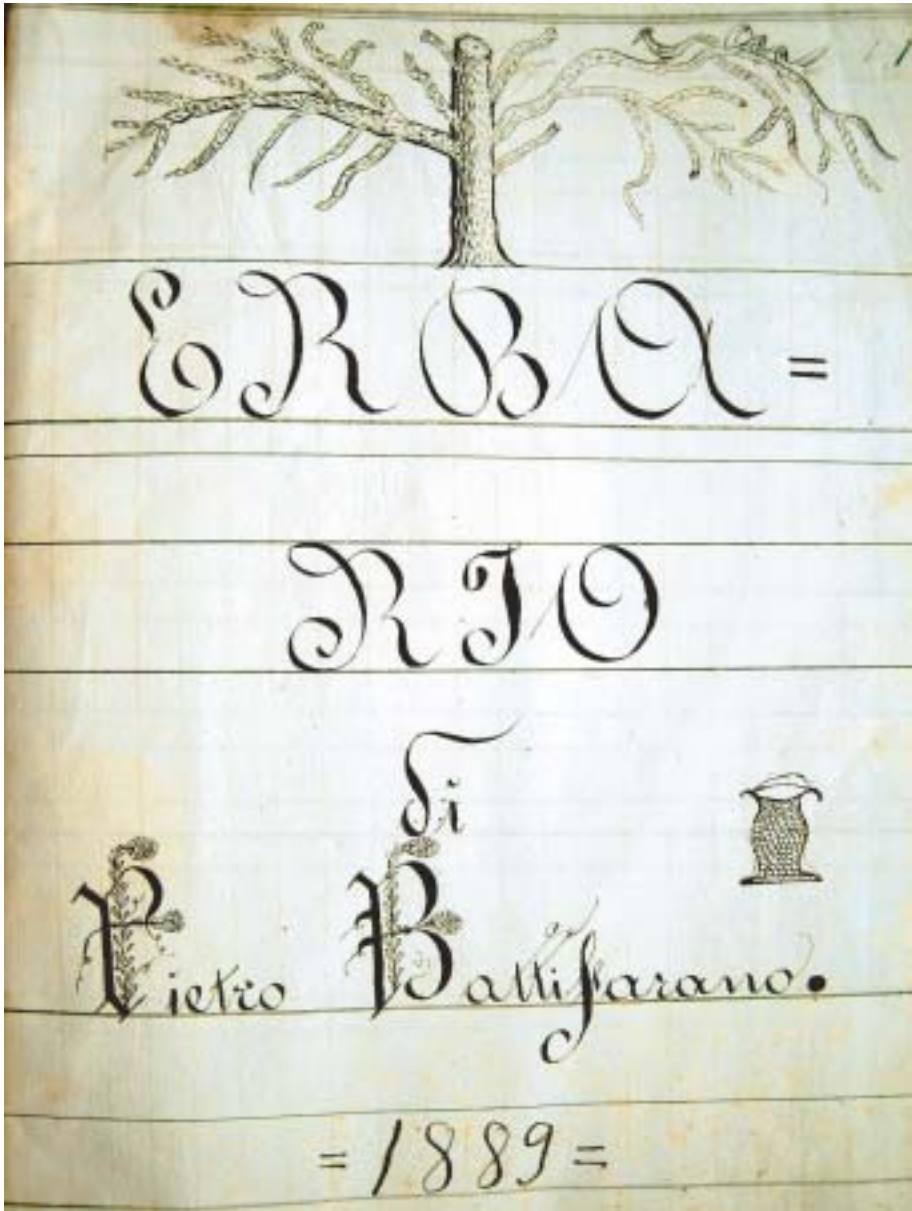 ERBA=
RIO
di
Pietro Battifarano.
= 1889 =